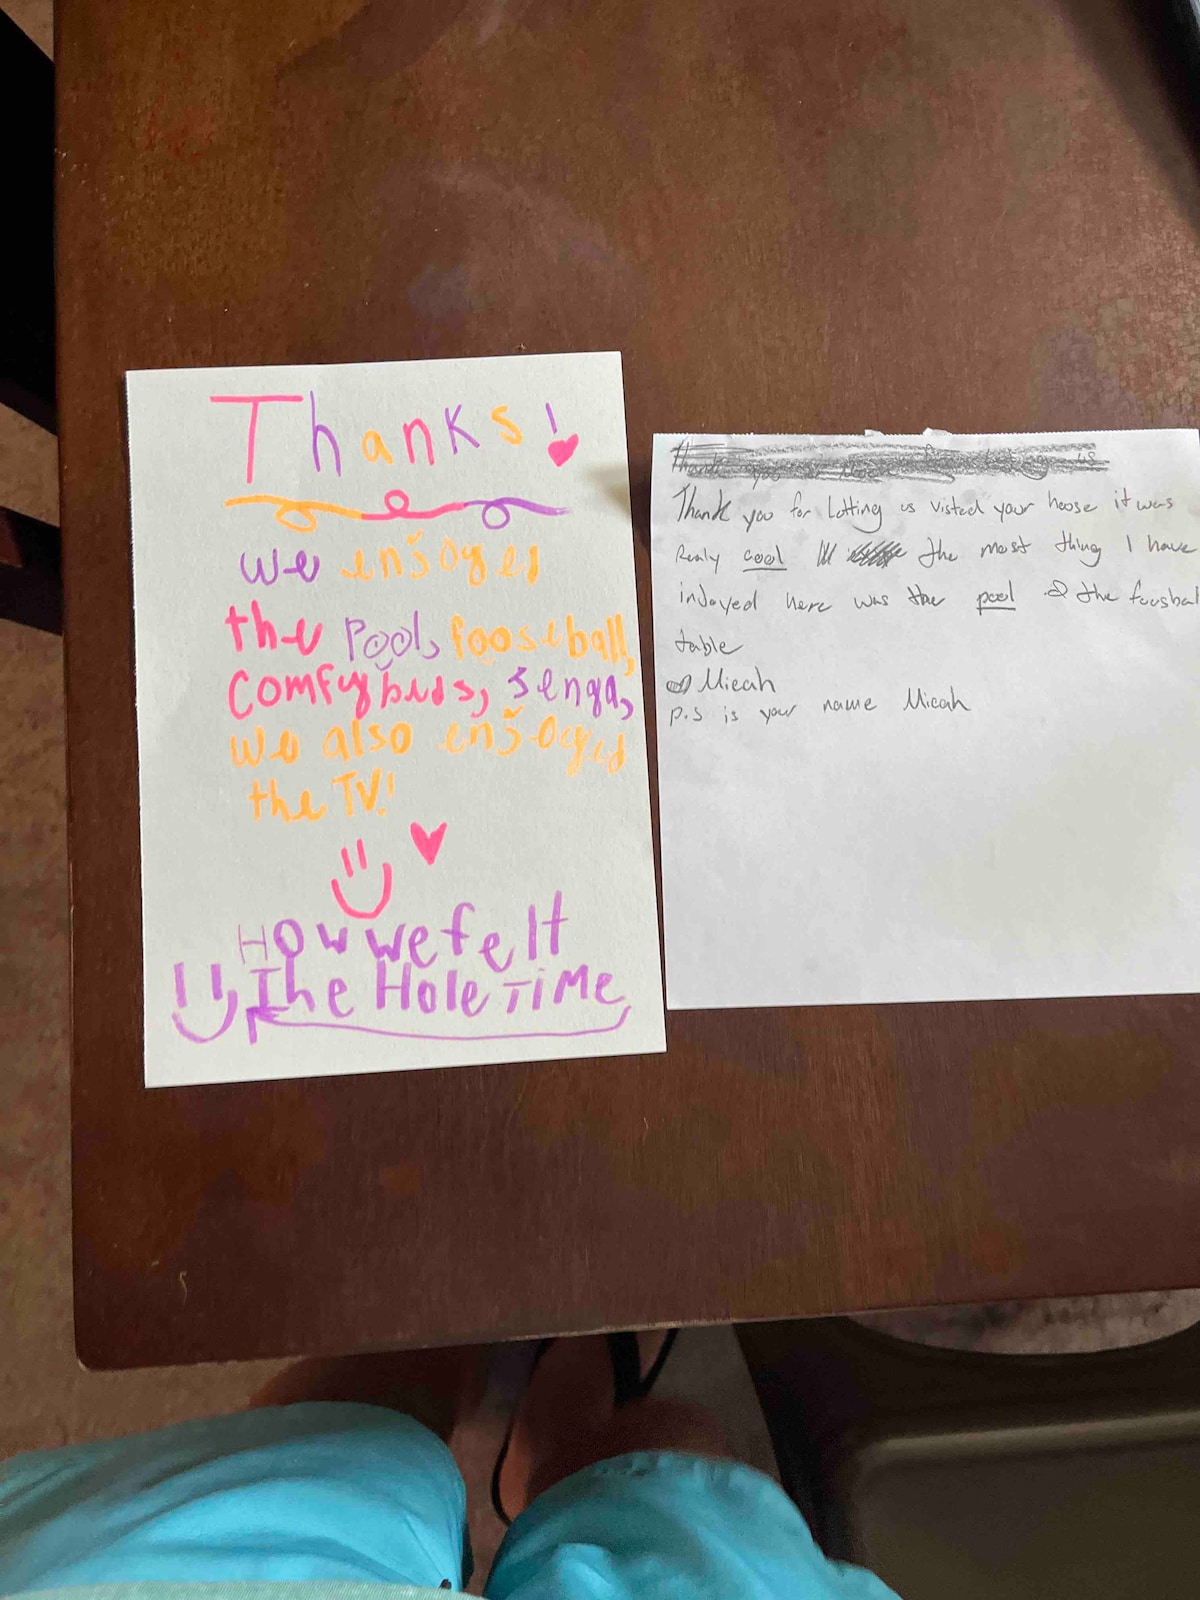 Thanks!
we enjoyed
the pool, fooseball,
comfy beds, jenga,
we also enjoyed
the TV!
How we felt
The Hole Time
Thank you for Letting us visted your hoose it was
Realy cool the most thing I have
injoyed here was the pool & the foosball
table
Micah
P.S is your name Micah